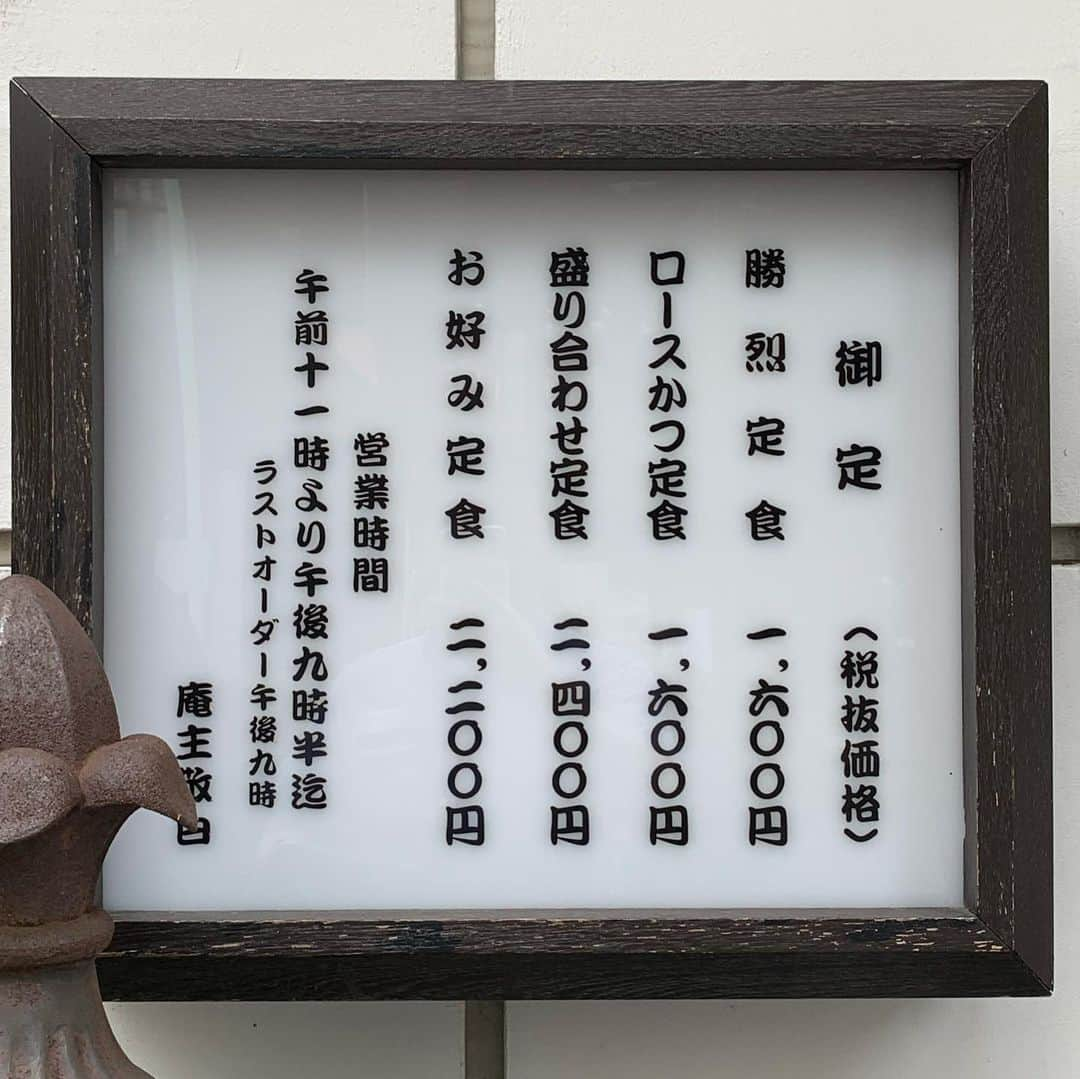 御定 （税抜価格）
勝烈定食 一,六〇〇円
ロースかつ定食 一,六〇〇円
盛り合わせ定食 二,四〇〇円
お好み定食 二,二〇〇円
営業時間
午前十一時より午後九時半迄
ラストオーダー午後九時
庵主敬白